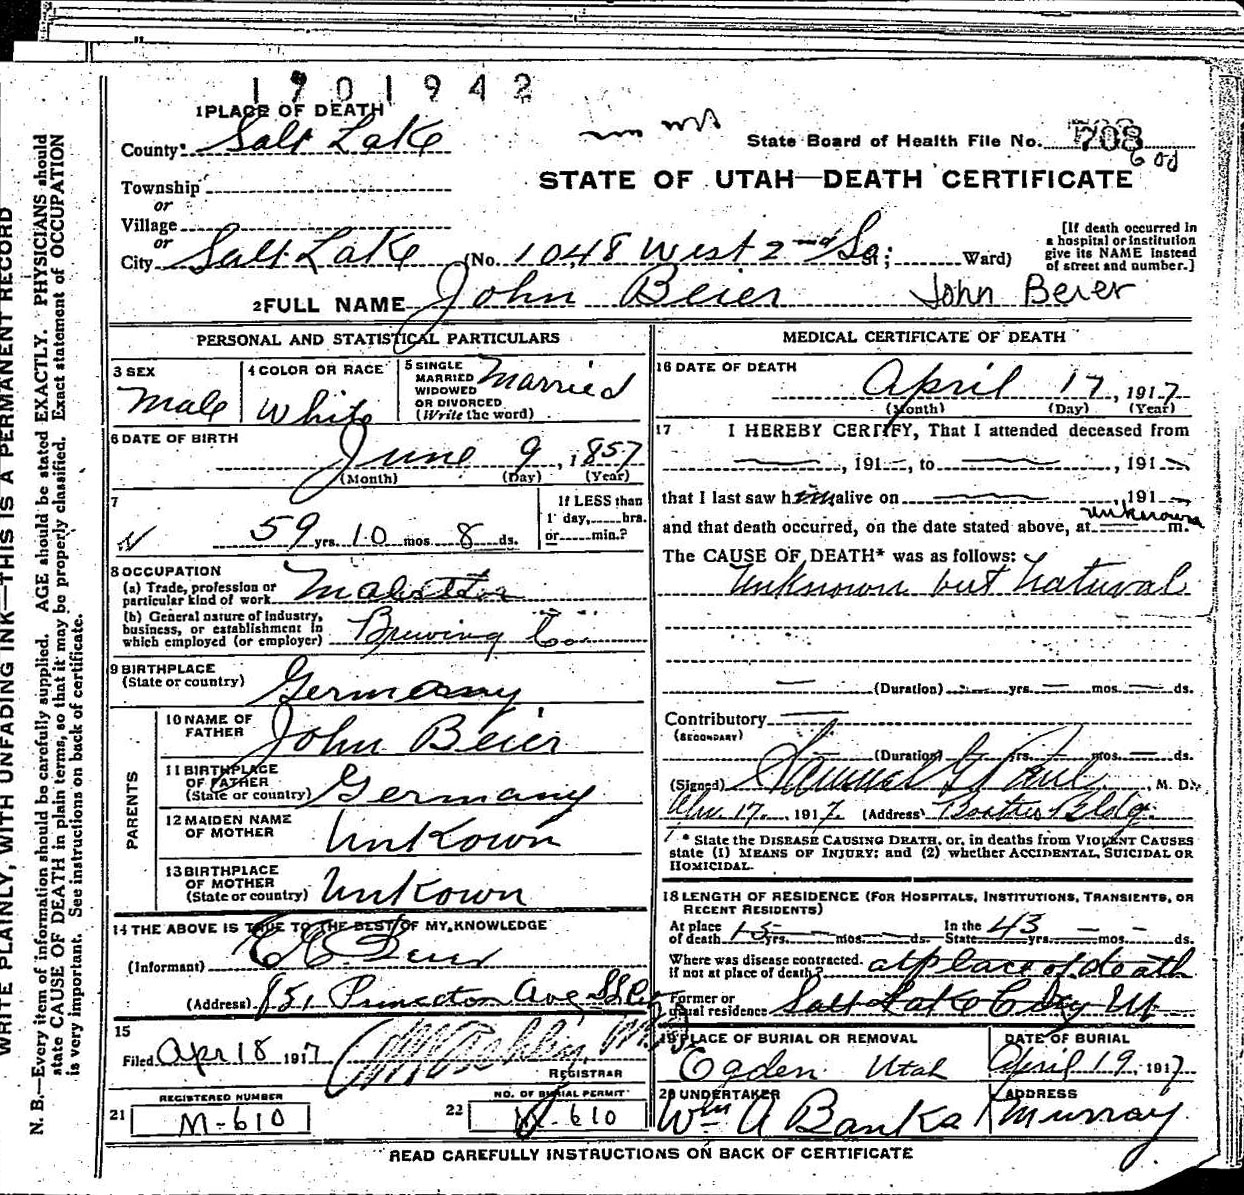 1901942
1 PLACE OF DEATH
County Salt Lake
State Board of Health File No. 708
Township
or
STATE OF UTAH—DEATH CERTIFICATE
Village
or
City Salt Lake (No. 1048 West 2nd So St; Ward)
[If death occurred in
a hospital or institution
give its NAME instead
of street and number.]
2 FULL NAME John Beier John Beier
PERSONAL AND STATISTICAL PARTICULARS
3 SEX
Male
4 COLOR OR RACE
White
5 SINGLE
MARRIED
WIDOWED
OR DIVORCED
(Write the word)
Married
6 DATE OF BIRTH
June 9, 1857
(Month) (Day) (Year)
7
59 yrs. 10 mos. 8 ds.
If LESS than
1 day, hrs.
or min.?
8 OCCUPATION
(a) Trade, profession or
particular kind of work
(b) General nature of industry,
business, or establishment in
which employed (or employer) Brewing Co.
9 BIRTHPLACE
(State or country) Germany
PARENTS
10 NAME OF
FATHER John Beier
11 BIRTHPLACE
OF FATHER
(State or country) Germany
12 MAIDEN NAME
OF MOTHER Unkown
13 BIRTHPLACE
OF MOTHER
(State or country) Unkown
14 THE ABOVE IS TRUE TO THE BEST OF MY KNOWLEDGE
(Informant)
(Address) 851 Princeton Ave
15
Filed Apr 18 1917
REGISTRAR
REGISTERED NUMBER
21 M-610
NO. OF BURIAL PERMIT
22 610
MEDICAL CERTIFICATE OF DEATH
16 DATE OF DEATH
April 17, 1917
(Month) (Day) (Year)
17 I HEREBY CERTIFY, That I attended deceased from
, 191 , to , 191
that I last saw him alive on , 191
and that death occurred, on the date stated above, at unknown m.
The CAUSE OF DEATH* was as follows:
Unknown but natural
(Duration) yrs. mos. ds.
Contributory
(SECONDARY)
(Duration) yrs. mos. ds.
(Signed) Samuel G Paul M. D.
17, 1917. (Address) Bldg.
* State the DISEASE CAUSING DEATH, or, in deaths from VIOLENT CAUSES
state (1) MEANS OF INJURY; and (2) whether ACCIDENTAL, SUICIDAL OR
HOMICIDAL.
18 LENGTH OF RESIDENCE (FOR HOSPITALS, INSTITUTIONS, TRANSIENTS, OR
RECENT RESIDENTS)
At place
of death 15 yrs. mos. ds. In the
State 43 yrs. mos. ds.
Where was disease contracted
if not at place of death? at place of death
Former or
usual residence Salt Lake City Ut
19 PLACE OF BURIAL OR REMOVAL
Ogden Utah
DATE OF BURIAL
April 19, 1917
20 UNDERTAKER
Wm A Banks
ADDRESS
Murray
READ CAREFULLY INSTRUCTIONS ON BACK OF CERTIFICATE
WRITE PLAINLY, WITH UNFADING INK—THIS IS A PERMANENT RECORD
N. B.—Every item of information should be carefully supplied. AGE should be stated EXACTLY. PHYSICIANS should
state CAUSE OF DEATH in plain terms, so that it may be properly classified. Exact statement of OCCUPATION
is very important. See instructions on back of certificate.